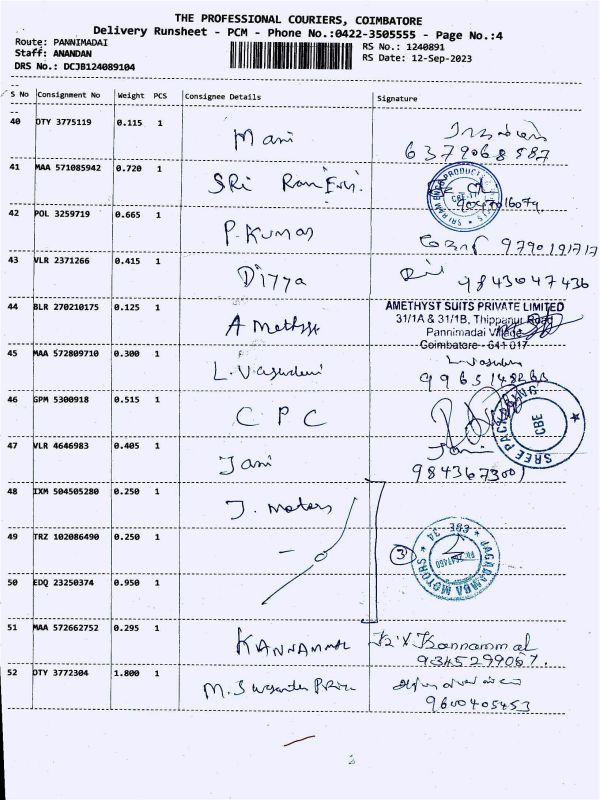 THE PROFESSIONAL COURIERS, COIMBATORE
Delivery Runsheet - PCM - Phone No.:0422-3505555 - Page No.:4
Route: PANNIMADAI
RS No.: 1240891
Staff: ANANDAN
RS Date: 12-Sep-2023
DRS No.: DCJB124089104
S No Consignment No Weight PCS Consignee Details Signature
40 OTY 3775119 0.115 1 Mani
6379068587
41 MAA 571085942 0.720 1 SRi Ram Ent.
SRI RAM PRODUCTS
42 POL 3259719 0.665 1 P. Kumar 9790191717
43 VLR 2371266 0.415 1 Divya 9843047436
44 BLR 270210175 0.125 1 Amethyst
AMETHYST SUITS PRIVATE LIMITED
31/1A & 31/1B, Thippanur Road
Pannimadai Village
Coimbatore - 641 017
45 MAA 572809710 0.300 1 L. Vasudevi
46 GPM 5300918 0.515 1 C P C
SREE PACKING CBE
47 VLR 4646983 0.405 1 Jani
9843673001
48 IXM 504505280 0.250 1 J. Motors
49 TRZ 102086490 0.250 1
3
JAGADAMBA MOTORS CBE - 34
50 EDQ 23250374 0.950 1
51 MAA 572662752 0.295 1 KANNAMMAL K.V. Kannammal
9345299067.
52 OTY 3772304 1.800 1
9600405453